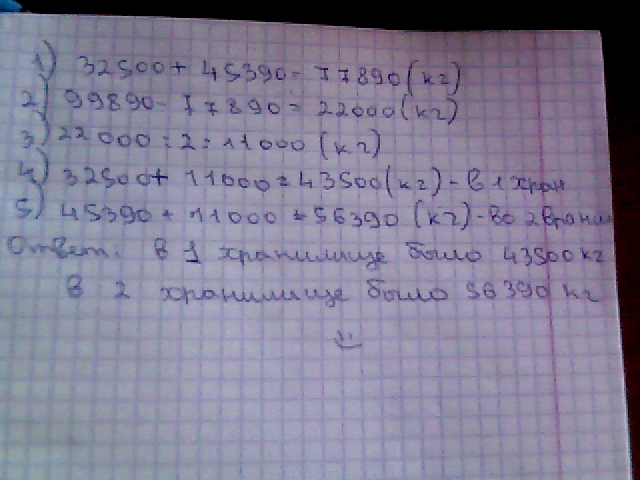 1) 32500 + 45390 = 77890 (кг)
2) 99890 - 77890 = 22000 (кг)
3) 22000 : 2 = 11000 (кг)
4) 32500 + 11000 = 43500 (кг) - в 1 хран
5) 45390 + 11000 = 56390 (кг) - во 2 храни
Ответ: в 1 хранилище было 43500 кг
в 2 хранилище было 56390 кг